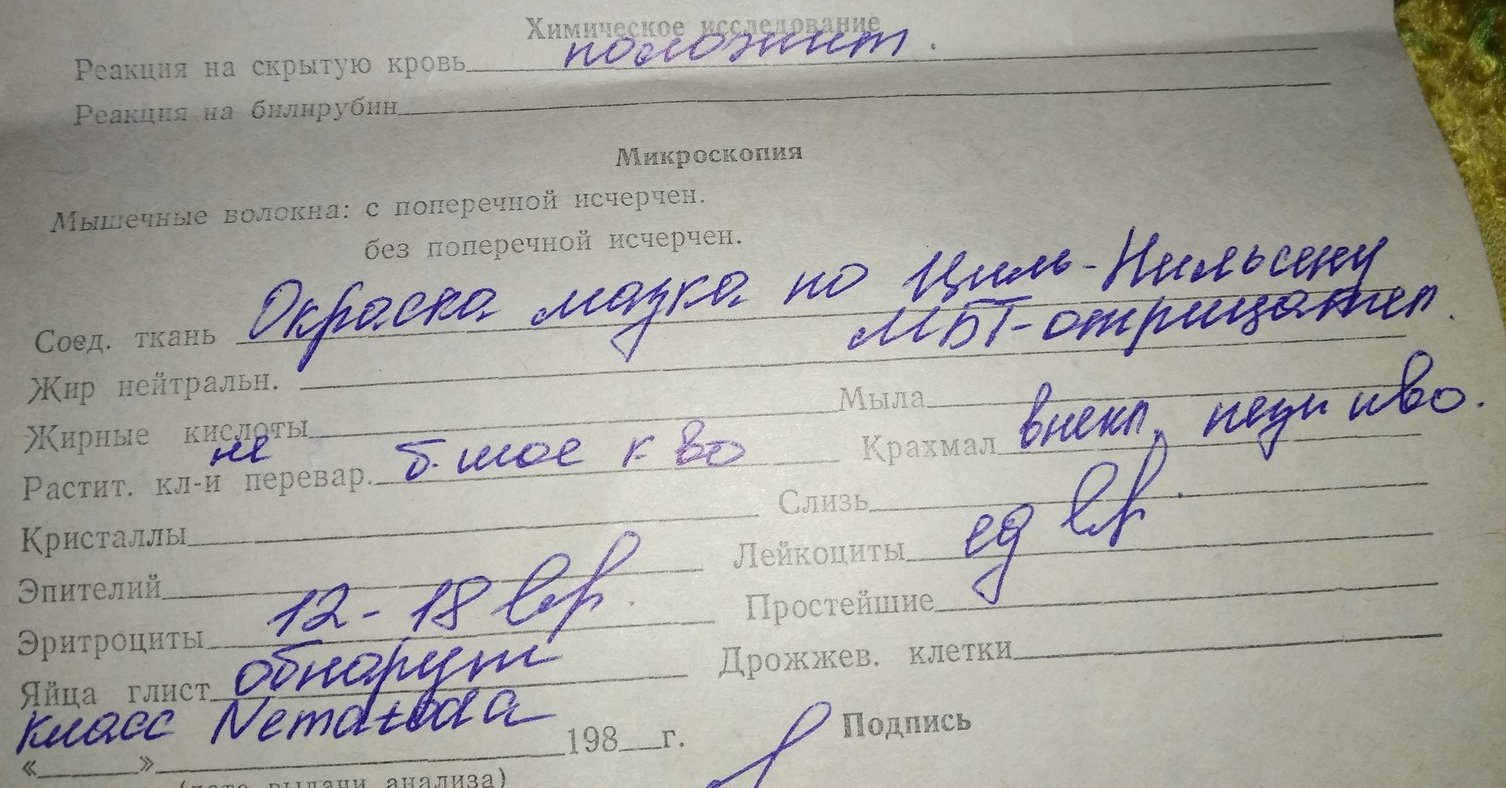 Химическое исследование
Реакция на скрытую кровь положит.
Реакция на билирубин
Микроскопия
Мышечные волокна: с поперечной исчерчен.
без поперечной исчерчен.
Соед. ткань Окраска мазка по Циль-Нильсену
МБТ-отрицател.
Жир нейтральн.
Жирные кислоты Мыла
Растит. кл-и не перевар. б. шое к-во Крахмал внекл.
Кристаллы Слизь
Эпителий Лейкоциты ед
Эритроциты 12-18 Простейшие
Яйца глист обнаруж Дрожжев. клетки
класс Nematoda
« » 198 г. Подпись
(дата выдачи анализа)